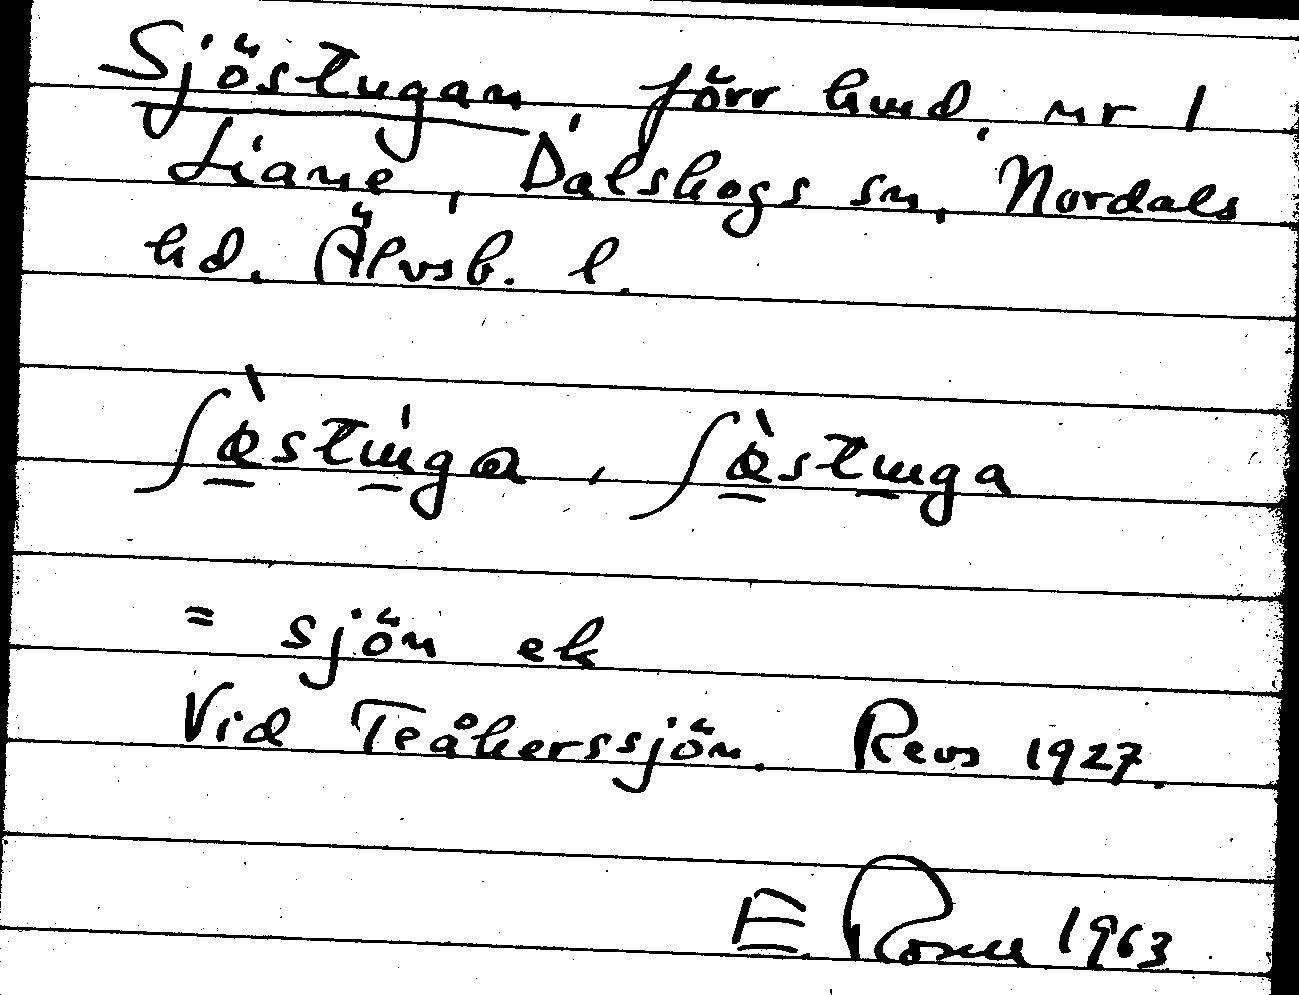 Sjöstugan, förr hmd. nr 1
Liane, Dalskogs sn, Nordals
hd. Älvsb. l.
= sjön ek
Vid Teåkerssjön. Revs 1927.
E. 1963